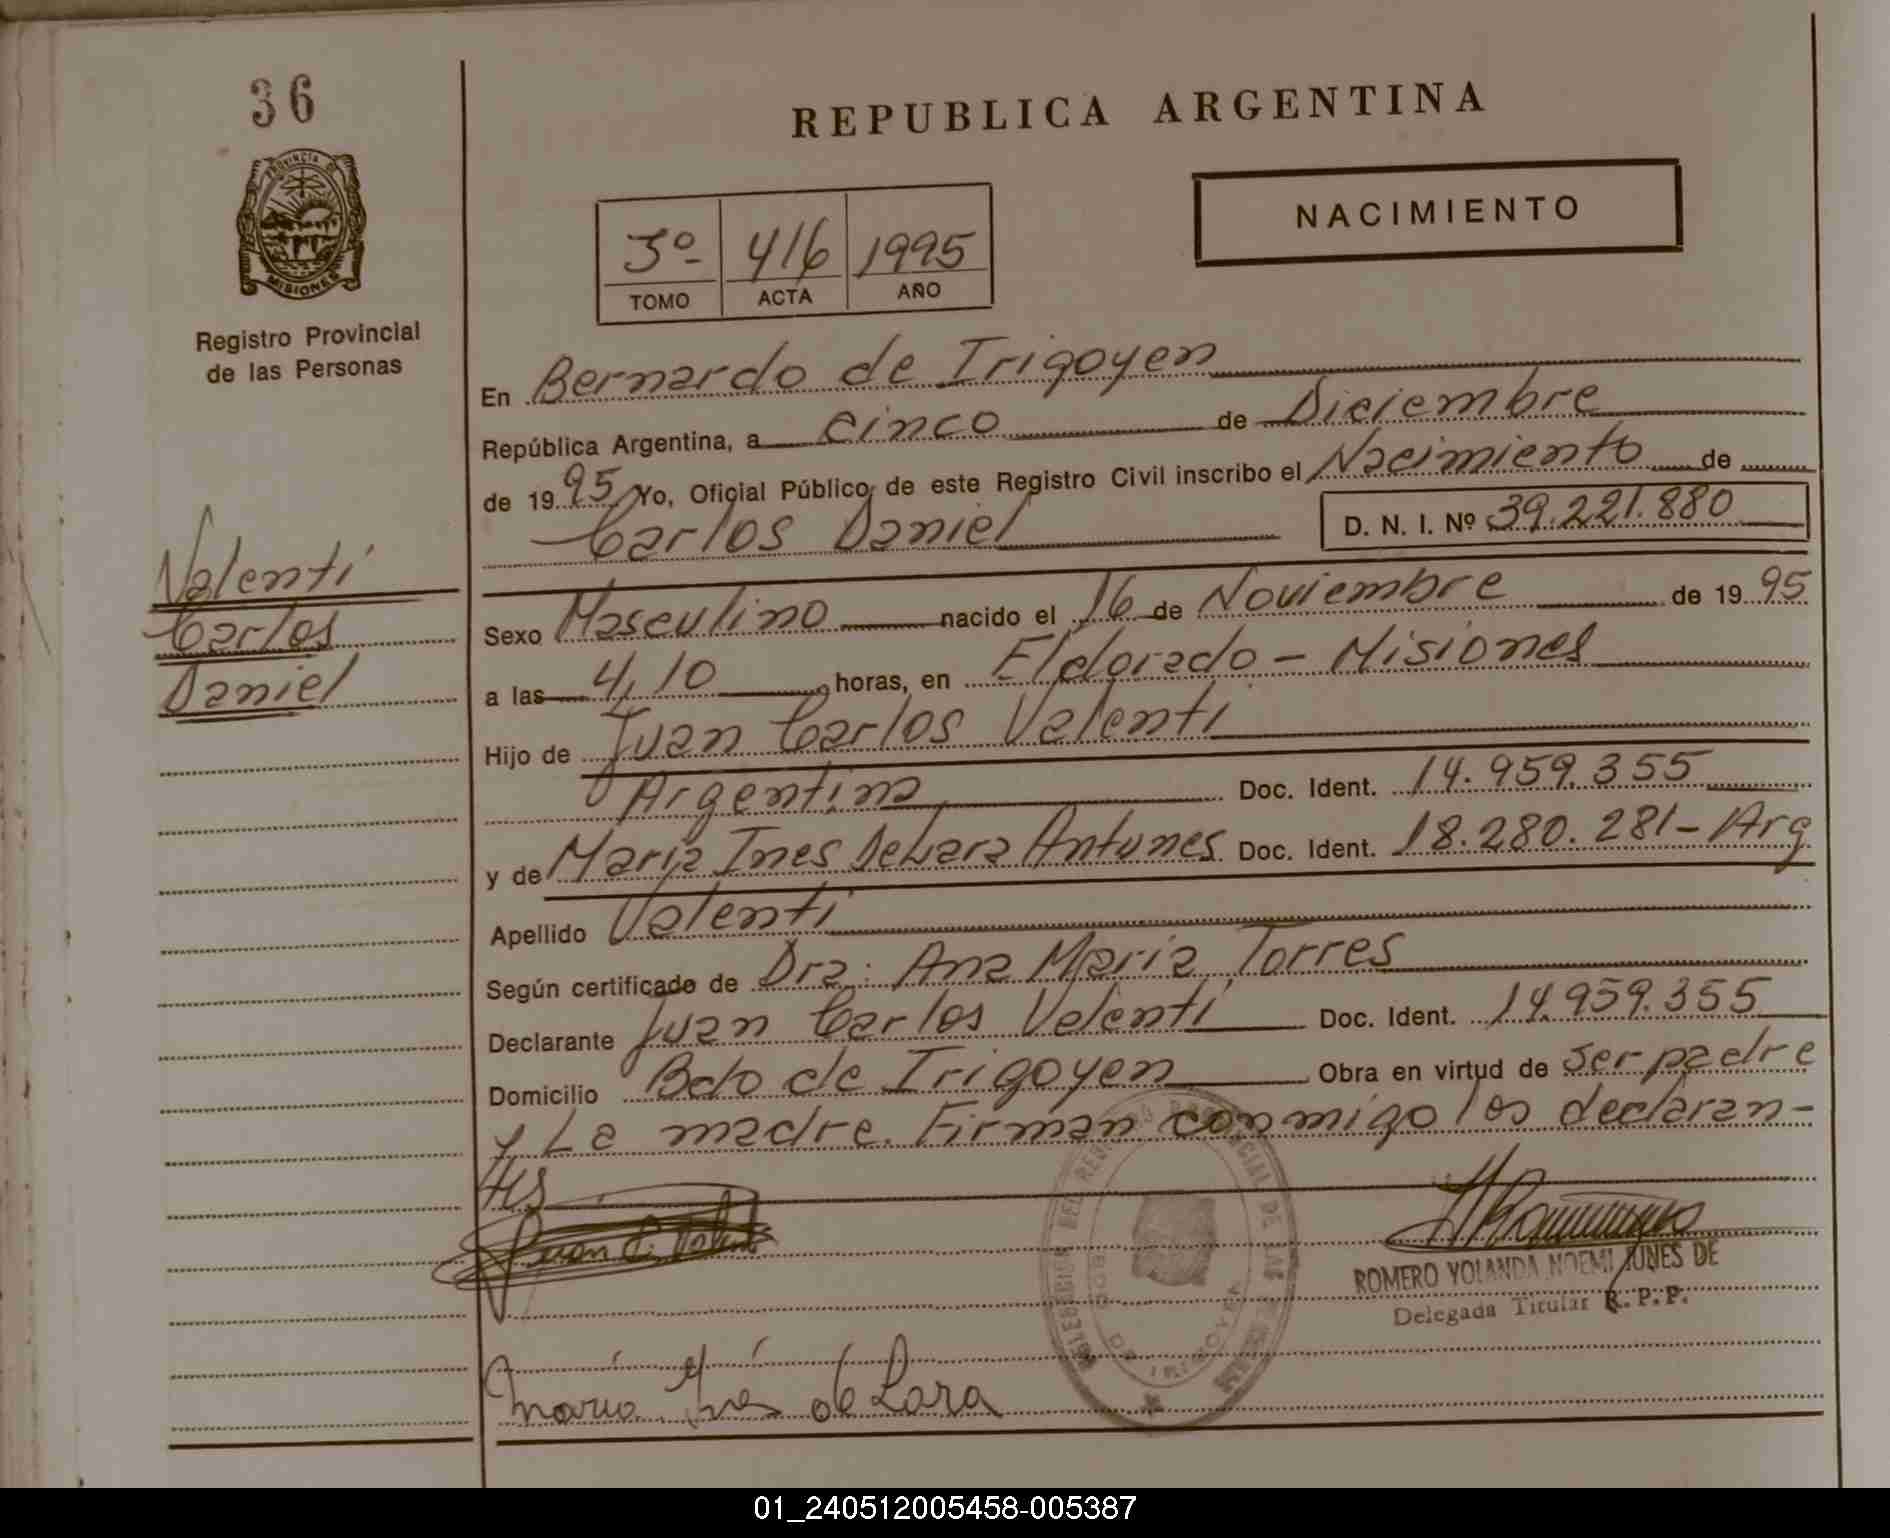 36
PROVINCIA DE
MISIONES
Registro Provincial
de las Personas
Valenti
Carlos
Daniel
REPUBLICA ARGENTINA
NACIMIENTO
3º 416 1995
TOMO ACTA AÑO
En Bernardo de Irigoyen
República Argentina, a cinco de Diciembre
de 1995 Yo, Oficial Público de este Registro Civil inscribo el Nacimiento de
Carlos Daniel D. N. I. Nº 39.221.880
Sexo Masculino nacido el 16 de Noviembre de 1995
a las 4,10 horas, en Eldorado - Misiones
Hijo de Juan Carlos Valenti
Argentina Doc. Ident. 14.959.355
y de Maria Ines DeLara Antunes Doc. Ident. 18.280.281 - Arg
Apellido Valenti
Según certificado de Dra: Ana Maria Torres
Declarante Juan Carlos Valenti Doc. Ident. 14.959.355
Domicilio Bdo de Irigoyen Obra en virtud de ser padre
y La madre. Firman conmigo los declaran-
tes
Juan C. Valenti
DELEGACION DEL REGISTRO PROVINCIAL DE LAS
BDO DE IRIGOYEN
ROMERO YOLANDA NOEMI JUNES DE
Delegada Titular R.P.P.
Maria Inés de Lara
01_240512005458-005387